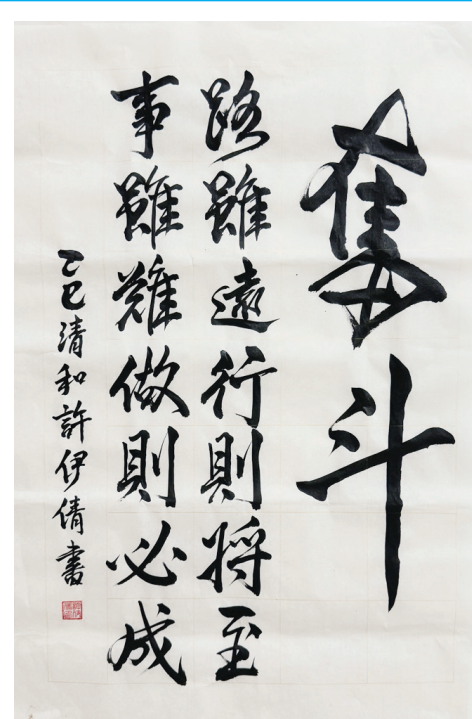 奮斗
路雖遠行則將至
事雖難做則必成
乙巳清和許伊倩書